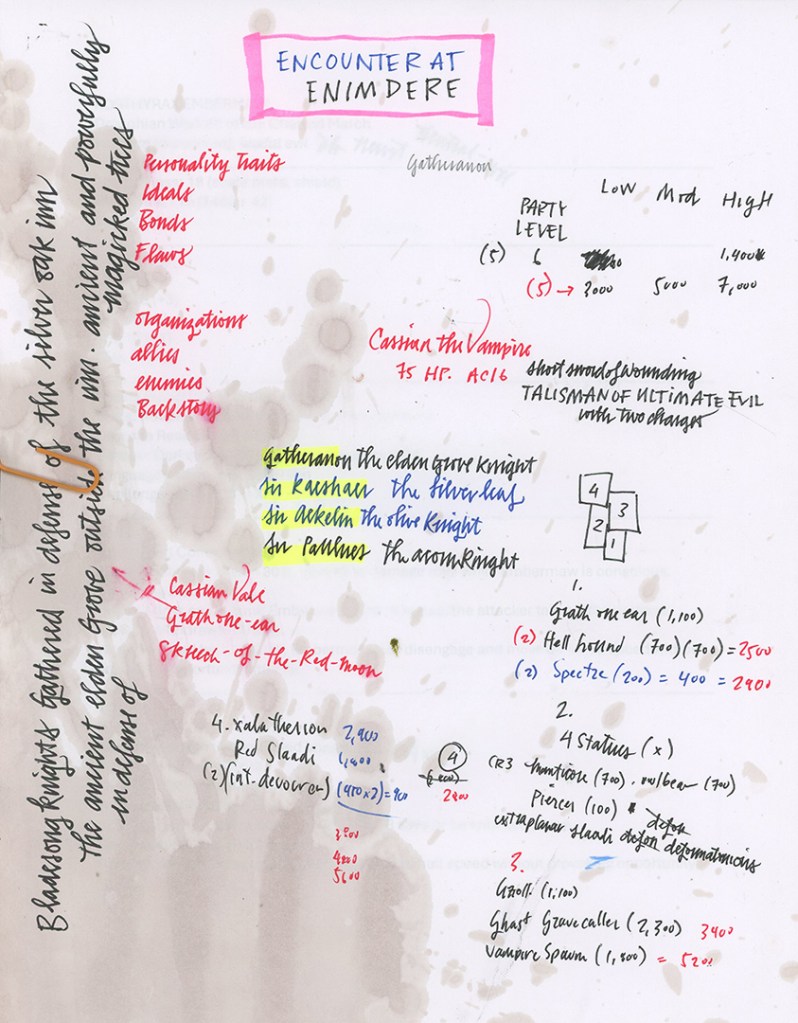 ENCOUNTER AT
ENIMDERE
Gatheranon
Personality Traits
Ideals
Bonds
Flaws
Organizations
allies
enemies
Backstory
LOW MOD HIGH
PARTY
LEVEL
(5) 6 1,400
(5) → 3000 5000 7,000
Cassian the Vampire
75 HP. AC16
short sword of wounding
TALISMAN OF ULTIMATE EVIL
with two charges
Gatheranon the elden Grove Knight
Sir Kaeshaer the Silver leaf
Sir Aekelin the olive Knight
the acorn Knight
4
3
2
1
Cassian Vale
Grath one-ear
Skreech-of-the-Red-moon
1.
Grath one ear (1,100)
(2) Hell hound (700)(700) = 2500
(2) Spectre (200) = 400 = 2900
2.
4 Statues (x)
CR3 manticore (700). owlbear (700)
Piercer (100)
extraplanar slaadi
3.
Gnoll (1,100)
Ghast Gravecaller (2,300) 3400
Vampire Spawn (1,800) = 5200
4. xalatherion 2,900
Red Slaadi 1,800
(2) (int. devourer) (450x2) = 900
4
2900
4800
5600
Bladesong Knights Gathered in defense of the silver oak inn
The ancient elden Grove outside the inn. ancient and powerfully
magicked trees
in defense of